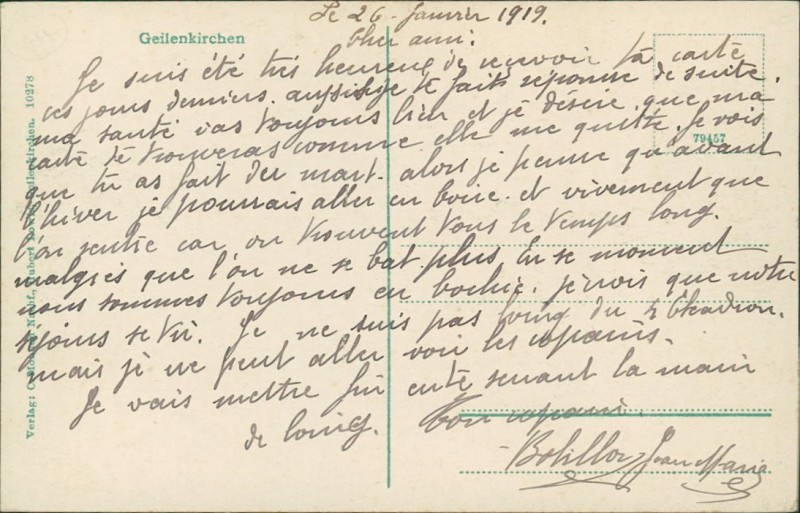 Le 26 Janvier 1919.
Geilenkirchen
Cher ami:
Je suis été tris heureuse de recevoir ta carte
ces jours derniers. aussi je te fait réponse de suite.
ma santé vas toujours bien et je désire que ma
carte te trouveras comme elle me quitte. Je vois
que tu as fait du mart. alors je pense qu'avant
l'hiver je pourrais aller en boire et vivement que
l'on rentre car on trouvent tous le temps long.
malgrés que l'on ne se bat plus. En se moment
nous sommes toujours en bochie. je vois que notre
séjours se Je ne suis pas loing du 2 Eskadron.
mais je ne peut aller voir les copains.
Je vais mettre fin en te serrant la main
de loing. Ton copain.
Botillon Jean Marie
79457
Verlag: Hubert Geilenkirchen. 10278